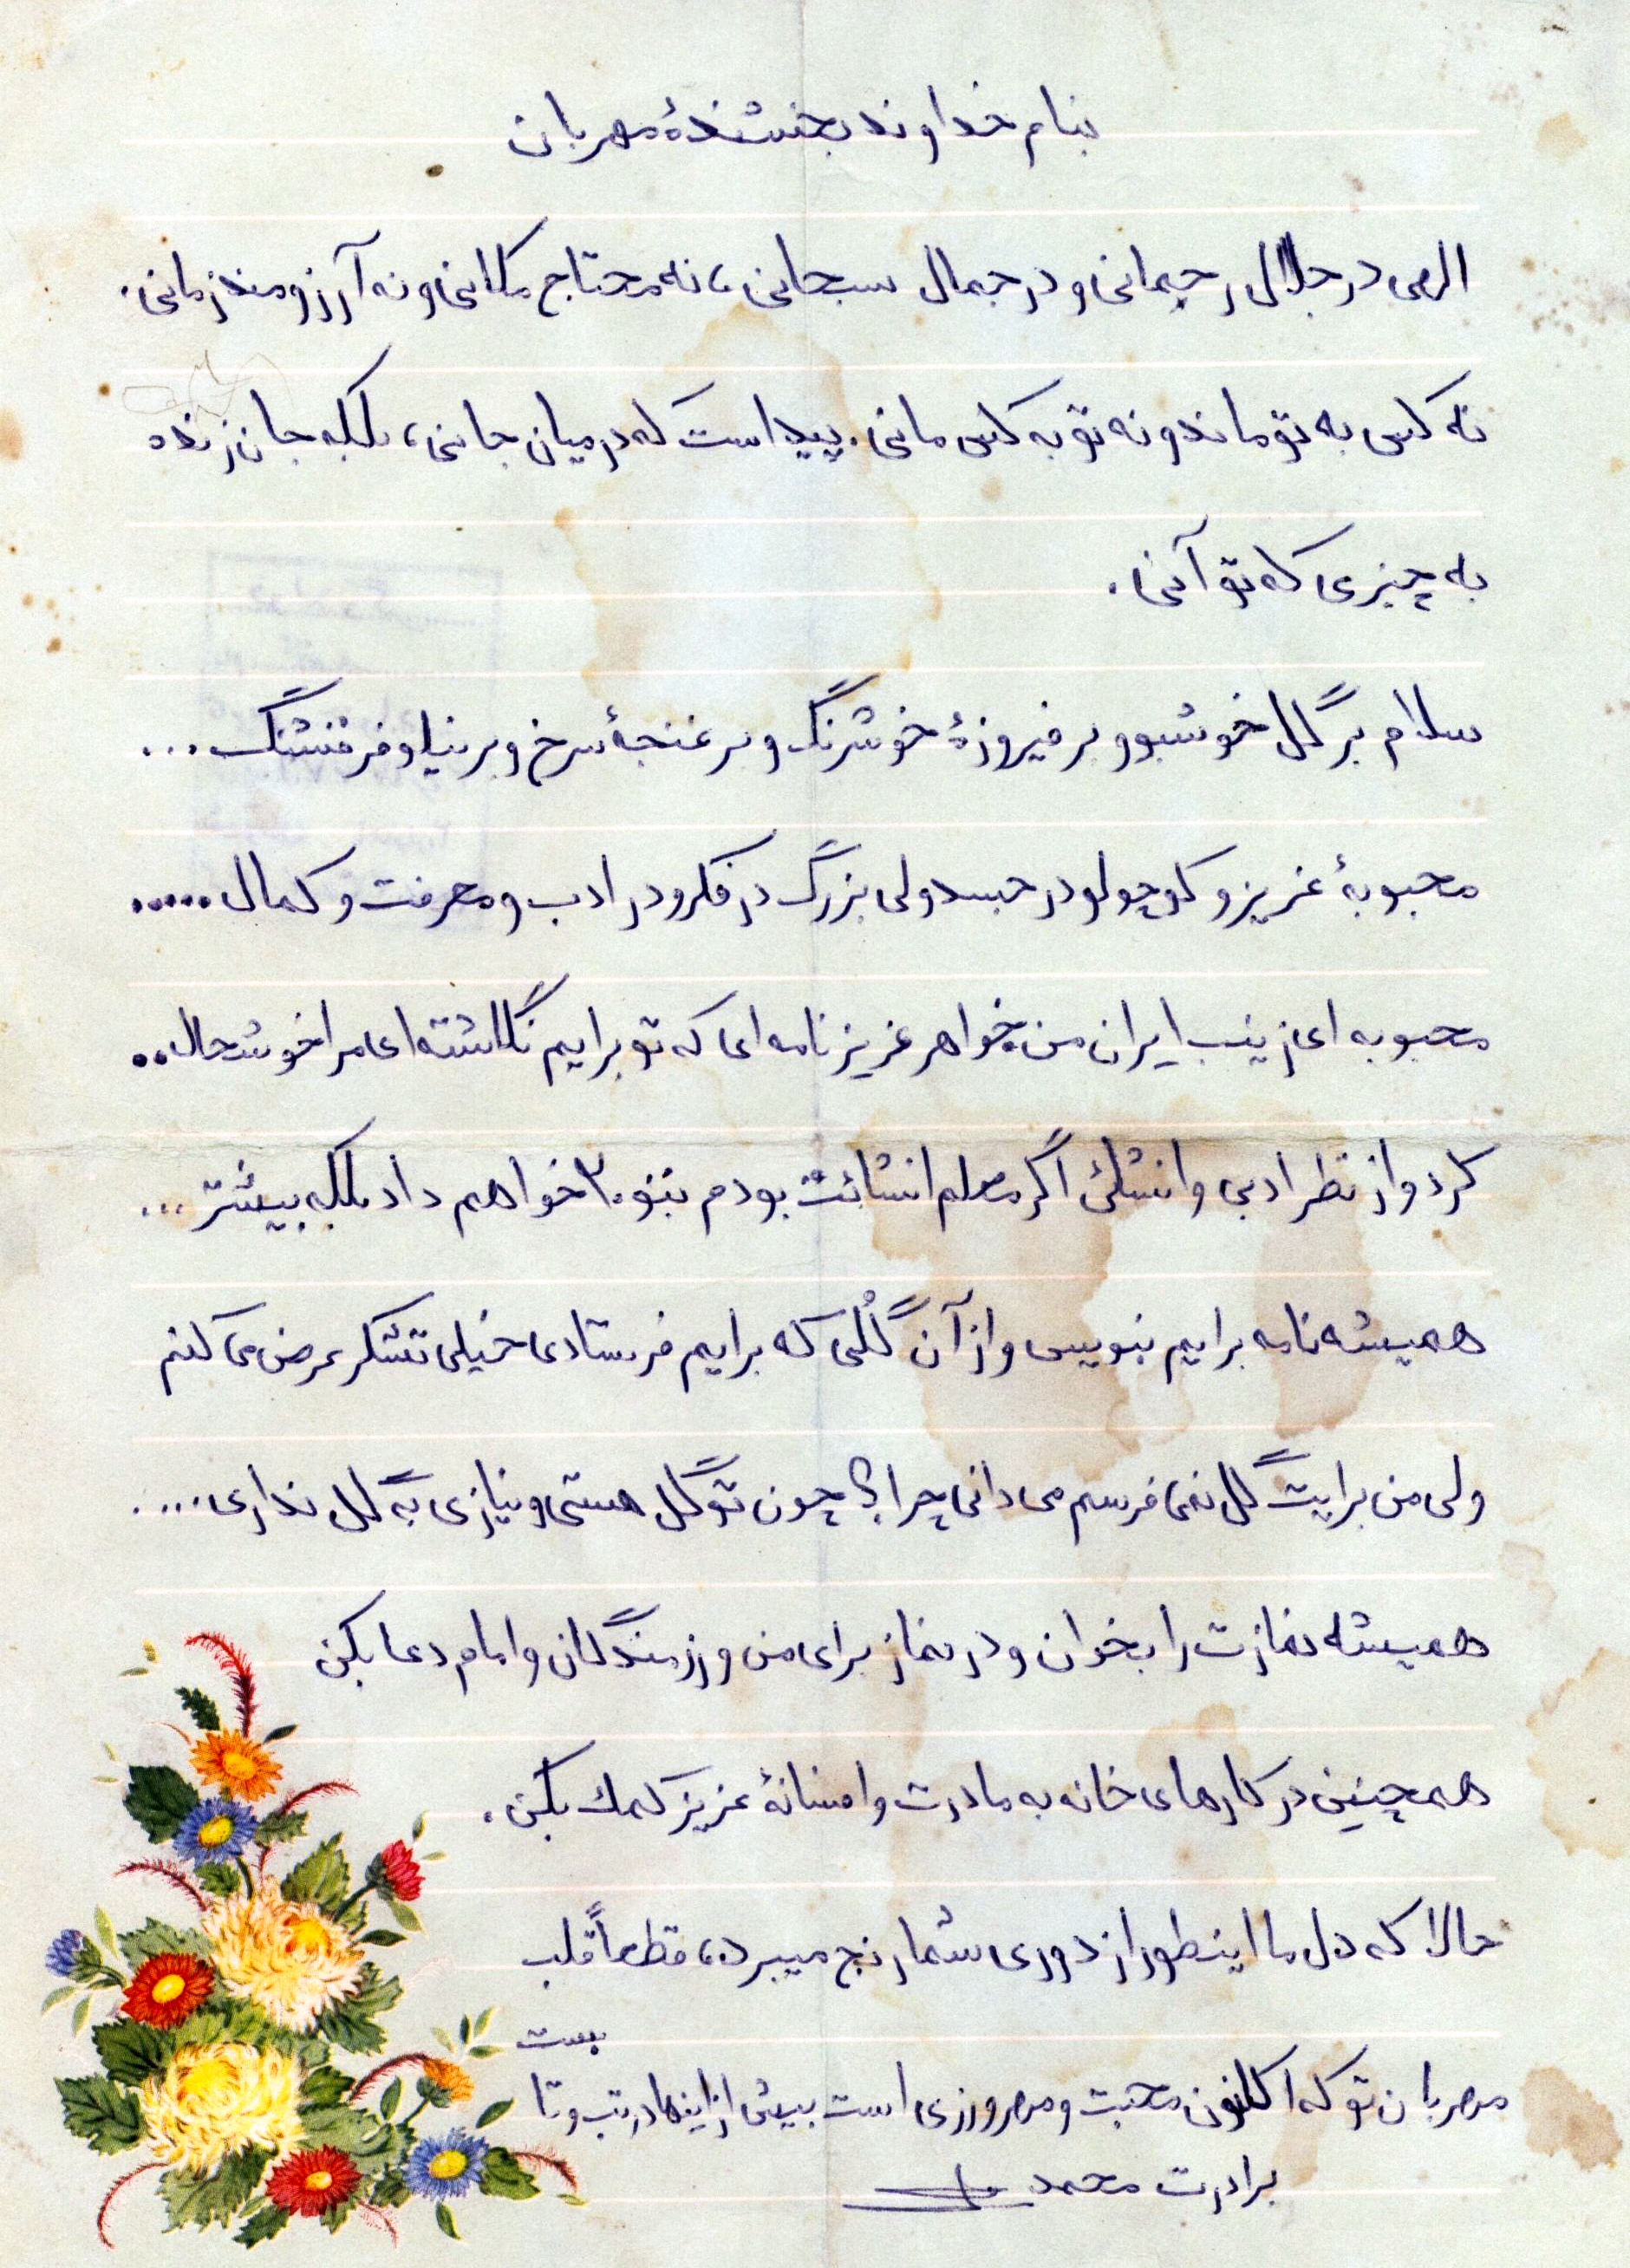 بنام خداوند بخشندهٔ مهربان
الهی در جلال رحمانی و در جمال سبحانی، نه محتاج مکانی و نه آرزومند زمانی.
نه کسی به تو ماند و نه تو به کسی مانی. پیداست که در میان جانی، بلکه جان زنده
به چیزی که تو آنی.
سلام بر گل خوشبو و بر فیروزهٔ خوشرنگ و بر غنچهٔ سرخ و بر نیلوفر قشنگ ...
محبوبهٔ عزیز و کوچولو در جسد ولی بزرگ در فکر و در ادب و معرفت و کمال .....
محبوبه ای زینب ایران من خواهر عزیز نامه ای که تو برایم نگاشته ای مرا خوشحال..
کرد و از نظر ادبی و انشائی اگر معلم انشائت بودم بتو ۲۰ خواهم داد بلکه بیشتر ...
همیشه نامه برایم بنویس و از آن گُلی که برایم فرستادی خیلی تشکر عرض می کنم
ولی من برایت گل نمی فرسم می دانی چرا؟ چون تو گل هستی و نیازی به گل نداری ....
همیشه نمازت را بخوان و در نماز برای من و رزمندگان و امام دعا بکن
همچنین در کارهای خانه به مادرت و افسانهٔ عزیز کمک بکن.
حالا که دل ما اینطور از دوری شما رنج میبرد، قطعاً قلب
مهربان تو که اکنون محبت و مهرورزی است بیش از اینها در تب و تا
بست
برادرت محمد